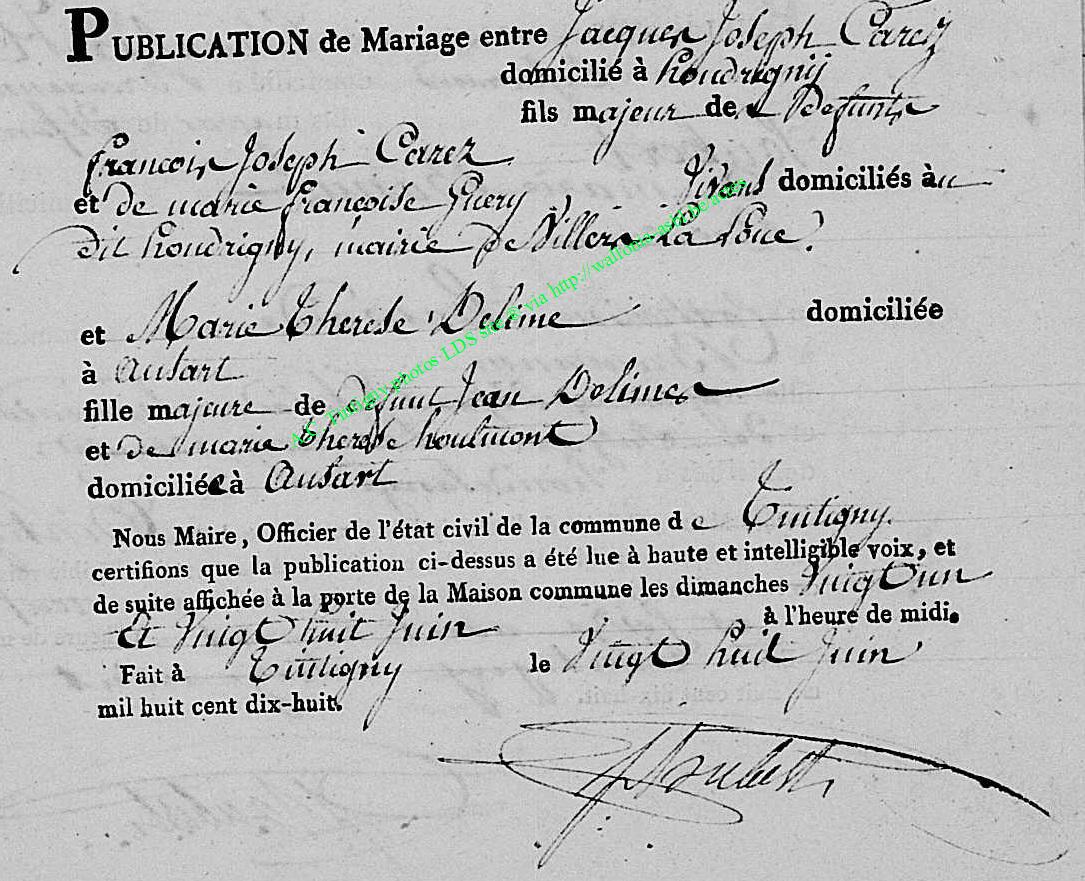 PUBLICATION de Mariage entre Jacques Joseph Carez
domicilié à houdrigny
fils majeur de Defunts
francois Joseph Carez
et de marie françoise Guery vivant domiciliés àu
dit houdrigny, mairie de Villers la Loue.
et Marie therese Delime domiciliée
à ansart
fille majeure de defunt Jean Delime
et de marie therese houlmont
domiciliée à ansart
Nous Maire, Officier de l'état civil de la commune de Tintigny.
certifions que la publication ci-dessus a été lue à haute et intelligible voix, et
de suite affichée à la porte de la Maison commune les dimanches vingt un
et vingt huit Juin à l'heure de midi.
Fait à Tintigny le vingt huit Juin
mil huit cent dix-huit.
A.C. Tintigny photos LDS site © via http://wallonia-asbl.be